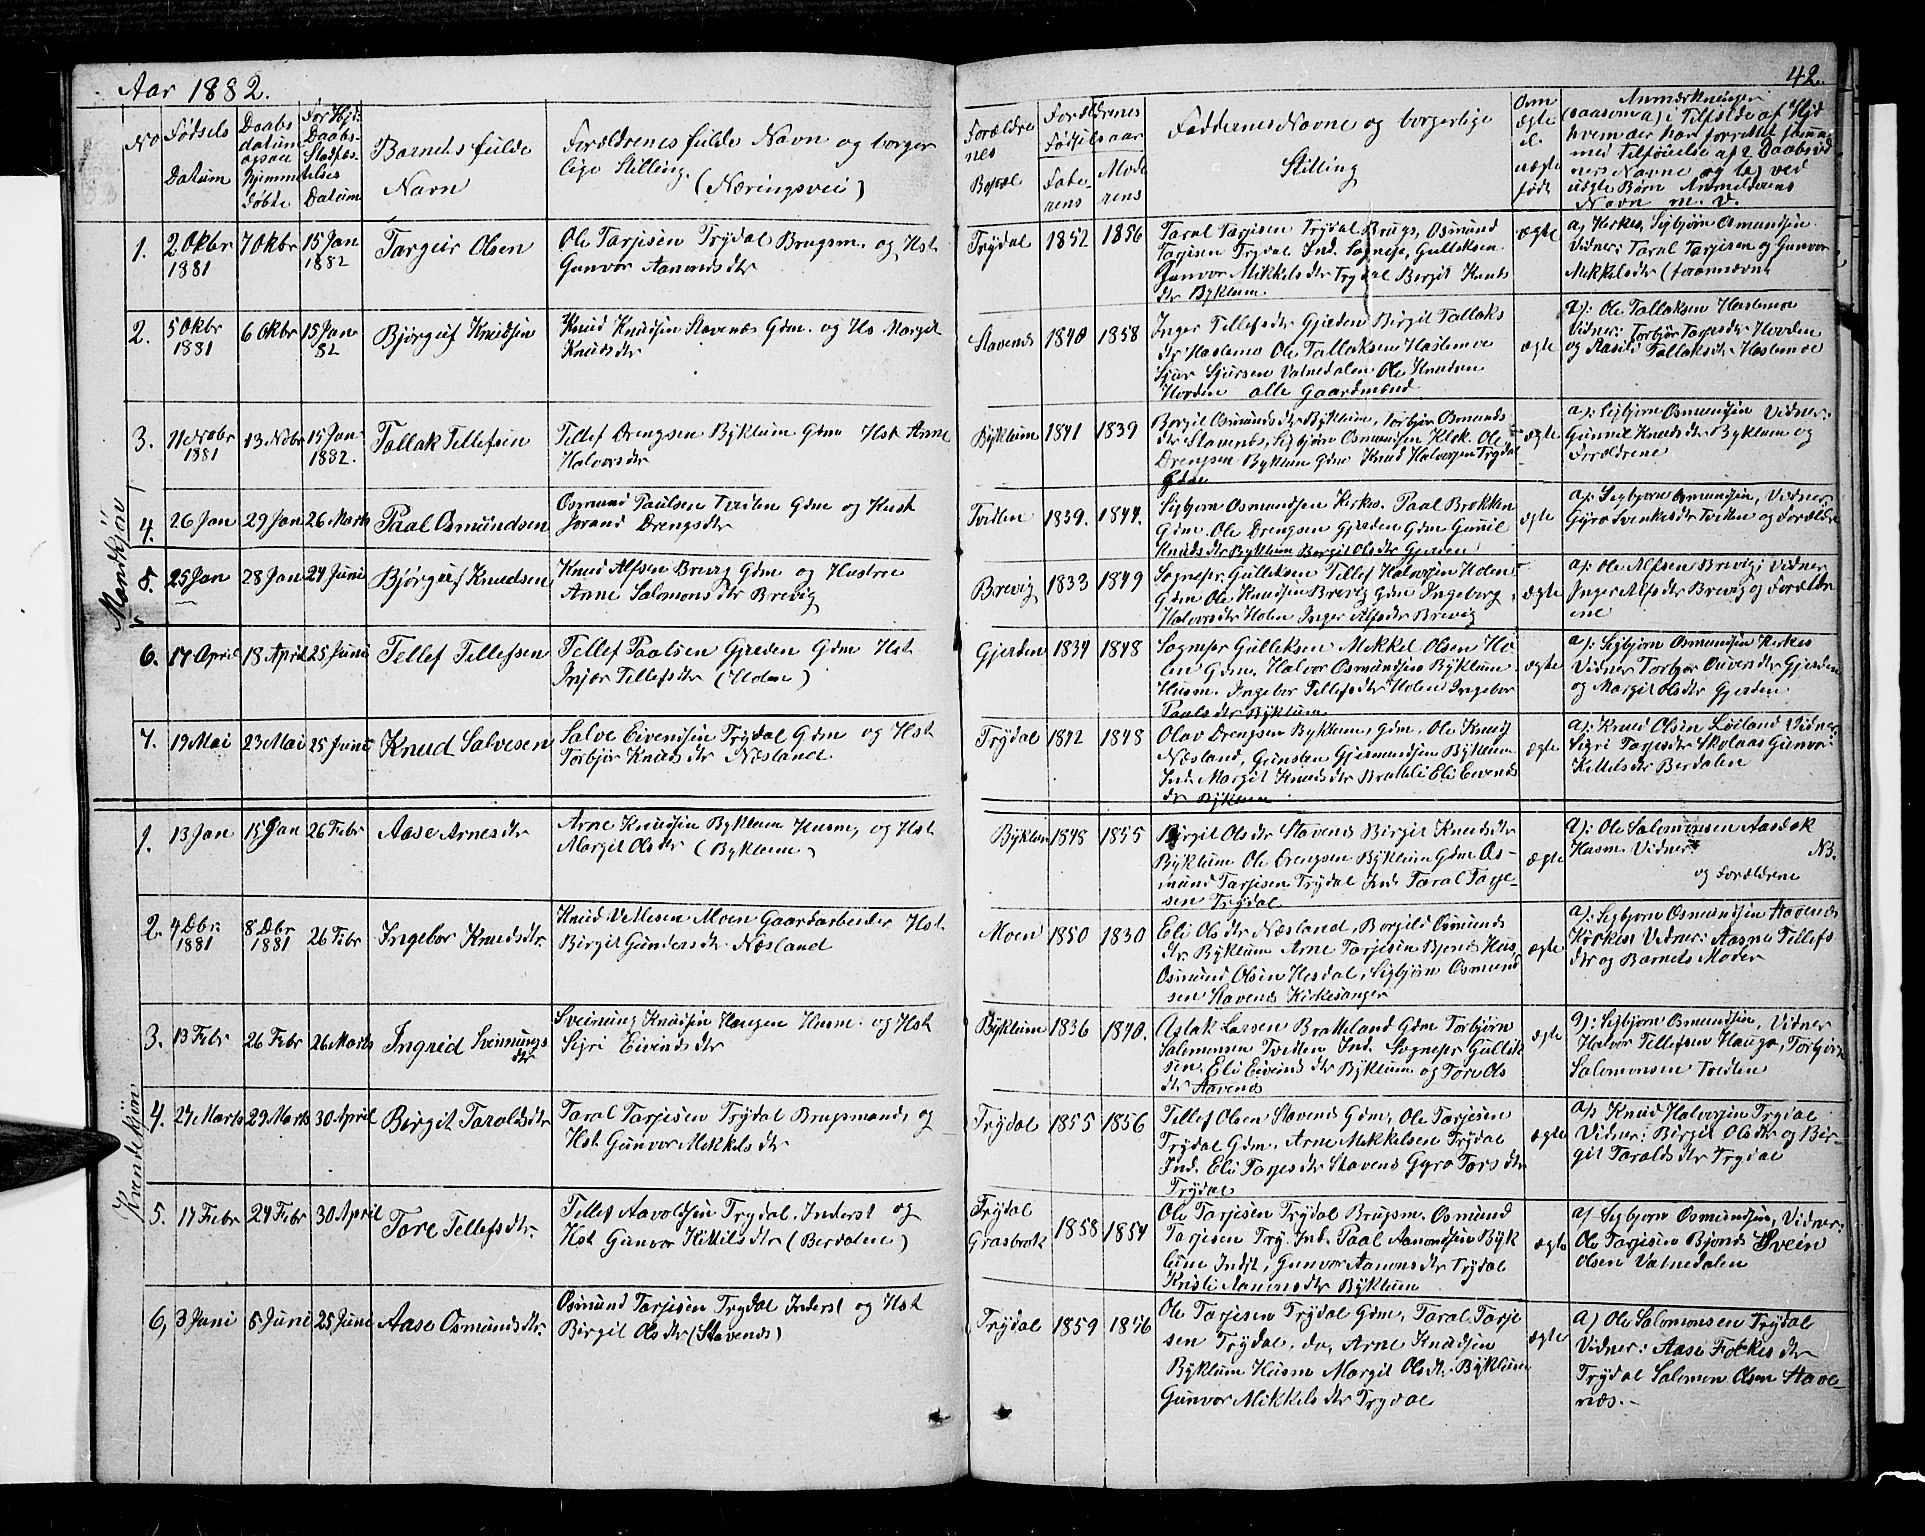 Aar 1882.
42.
No
Fødsels
Datum
Daabs
datum
ogsaa
hjemme
døbte
For Hj:
Daabs
Stadfæs-
telses
Datum
Barnets fulde
Navn
Forældrenes fulde Navn og borger
lige Stilling.
(Næringsvei)
Forældre
nes
Bopæl
Forældrenes
Fødselsaar
Fade-
rens
Mode
rens
Faddernes Navne og borgerlige
Stilling
Om
ægte
el.
uægte
født
Anmærkninger
(saasom a) i Tilfælde af Hjd
hvem der har forrettet samme
med Tilføielse af 2 Daabsvid
ners Navne og b) ved
uægte Børn Anmelderens
Navn m. v.
Mandkjøn
1.
2 Okbr
1881
7 Okbr
15 Jan
1882
Targeir Olsen
Ole Tarjesen Trydal Brugsm. og Hst.
Gunvor Aanonds dtr
Trydal
1852
1856
Taral Tarjesen Trydal Brugs, Osmund
Tarjesen Trydal Ind. Sognepr. Gulleksen
Gunvor Mikkels dtr Trydal Borgit Knuds
dtr Byklum.
ægte
a) Kirkes. Sigbjørn Osmundsen
Vidner: Taral Tarjesen og Gunvor
Mekkels dtr (forannævnt
2.
5 Okbr
1881
6 Okbr
15 Jan
82
Bjørguf Knudsen
Knud Knudsen Stavenæs Gdm. og Hs. Margit
Knuds dtr
Stavenes
1840
1858
Inger Tellefs dtr Gjerden Birgit Tallaks
dtr Haslemo Ole Tallaksen Haslemoe
Sjur Sjursen Vatnedalen Ole Knudsen
Horden alle Gaardmænd
ægte
a): Ole Tallaksen Haslemoe
Vidner: Torbjør Tarjes dtr Horden
og Aasild Tallaks dtr Haslemoe
3.
11 Nobr
1881
13 Nobr
15 Jan
1882.
Tallak Tellefsen
Tellef Drengsen Byklum Gdm Hst Anne
Halvors dtr
Byklum
1841
1839
Borgil Osmunds dtr Byklum, Torbjør Osmunds
dtr Stavenes, Sigbjørn Osmundsen Klok. Ole
Drengsen Byklum Gdm Knud Halvorsen Trydal
Gdm
ægte
a): Sigbjørn Osmundsen Vidner:
Gunnil Knuds dtr Byklum og
Forældrene
4.
26 Jan
29 Jan
26 Marts
Paal Osmundsen
Osmund Paulsen Tveiten Gdm og Hust
Jorand Drengsdtr
Tveiten
1839.
1844.
Sigbjorn Osmundsen Kerkes. Paal Brokken
Gdm. Ole Drengsen Gjerden Gdm Gunnil
Knuds dtr Byklum Borgit Ols dtr Gjerden
ægte
a): Sigbjorn Osmundsen, Vidner:
Gyro Svenkes dtr Tveiten og Forældre
5.
25 Jan
28 Jan
24 Juni
Bjørguf Knudsen
Knud Alfsen Brevig Gdm og Hustru
Anne Salomons dtr Brevig
Brevig
1833
1849
Sognepr. Gulleksen Tellef Halvorsen Holen
Gdm Ole Knudsen Brevig Gdm Ingeborg
Halvors dtr Holen Inger Alfs dtr Brevig
ægte
a): Ole Alfsen Brevig; Vidner
Inger Alfs dtr Brevig og Foreldre
ene
6.
17 April
18 April
25 Juni
Tellef Tellefsen
Tellef Paalsen Gjerden Gdm Hst
Injær Tellefs dtr (Holen)
Gjerden
1834
1848
Sognepr Gulleksen Mekkel Olsen Ho
len Gdm. Halvor Osmundsen Byklum
Husm. Ingebor Tellefs dtr Holen Ingebor
Pauls dtr Byklum
ægte
a): Sigbjørn Osmundsen Kerkes
Vidner Torbjør Onivers dtr Gjerden
og Margit Ols dtr Gjerden
7.
19 Mai
23 Mai
25 Juni
Knud Salvesen
Salve Eivendsen Trydal Gdm og Hst
Torbjør Knuds dtr Næsland
Trydal
1842
1848
Olav Drengsen Byklum, Gdm, Ole Knuds
Næsland, Gunsten Gjermundsen Byklum
Ind. Margit Knuds dtr Bratteli Eli Eivends
dtr Byklum
ægte
a): Knud Olsen Løiland Vidner:
Sigri Tarjes dtr Skolaas Gunvor
Kittels dtr Berdalen
Kvendekjøn
1.
13 Jan
15 Jan
26 Febr
Aase Arnes dtr
Arne Knudsen Byklum Husm, og Hst.
Margit Ols dtr (Byklum)
Byklum
1848
1855
Birgit Ols dtr Stavenes Birgit Knuds dtr
Byklum Ole Drengsen Byklum Gdm Os-
mund Tarjesen Trydal Ind Taral Tarje-
sen Trydal
ægte
a): Ole Salomonsen Aasdøk
Husm. Vidner:
NB.
og Forældrene
2.
4 Dbr.
1881
8 Dbr
1881
26 Febr
Ingebor Knuds dtr.
Knud Vetlesen Moen Gaardarbeider Hst.
Birgit Gunders dtr Næsland
Moen
1850
1830
Eli Ols dtr Næsland, Borgild Osmunds
dtr Byklum Arne Tarjesen Bjones Hus,
Osmund Olsen Hesdal, Sigbjørn Osmund
sen Stavenes Kirkesanger
ægte
a): Sigbjorn Osmundsen Stavenæs
Kirkes: Vidner: Aasne Tellefs
dtr og Barnets Moder
3.
13 Febr
26 Febr
26 Marts
Ingrid Svennungs
dtr
Sveinung Knudsen Haugen Husm. og Hst
Sigri Eivinds dtr
Byklum
1836
1840.
Aslak Larsen Bratteland Gdm Torbjørn
Salomonsen Tveiten Ind. Sognepr Gullik
sen. Eli Eiveinds dtr Byklum og Tore Ols
dtr Stavenes
ægte
a): Sigbjorn Osmundsen, Vidner
Halvor Tellefsen Hauge, Torbjørn
Salomonsen Tveiten
4.
27 Marts
29 Marts
30 April
Birgit Tarolds dtr
Taral Tarjesen Trydal Brugsmand, og
Hst Gunvor Mekkels dtr
Trydal
1855
1856
Tellef Olsen Stavenes Gdm, Ole Tarjesen
Trydal Gdm, Arne Mekkelsen Trydal
Ind. Eli Tarjes dtr Stavenes Gyro Tors dtr
Trydal
ægte
a): Knud Halvorsen Trydal
Vidner: Birgit Ols dtr og Bir-
git Taralds dtr Trydal
5.
17 Febr
24 Febr
30 April
Tore Tellefs dtr.
Tellef Aavoldsen Trydal, Inderst og
Hst Gunvor Kittils dtr (Berdalen)
Trydal
Grasbrok
1858
1854
Ole Tarjesen Trydal Brugsm. Osmund
Tarjesen Try. Ind. Paal Aanondsen Byk
lum Indst, Gunvor Aanons dtr Trydal
Kristi Aanons dtr Byklum
ægte
a) Sigbjorn Osmundsen, Vidner:
Ole Tarjesen Bjones Svein
Olsen Vatnedalen
6,
3 Juni
5 Juni
25 Juni
Aase Osmunds dtr.
Osmund Tarjesen Trydal Inderst og Hst
Birgit Ols dtr (Stavenes)
Trydal
1859
1856
Ole Tarjesen Trydal Gdm, Taral Tarje
sen Trydal, do, Arne Knudsen
Byklum Husm Margit Ols dtr Byklum
Gunvor Mikkels dtr Trydal
ægte
a) Ole Salomonsen Trydal
Vidner: Aase Folkes dtr
Trydal Salomon Olsen Stave-
næs.